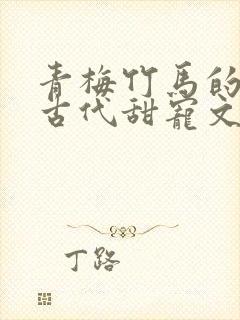 青梅竹马的
古代甜宠文
丁路